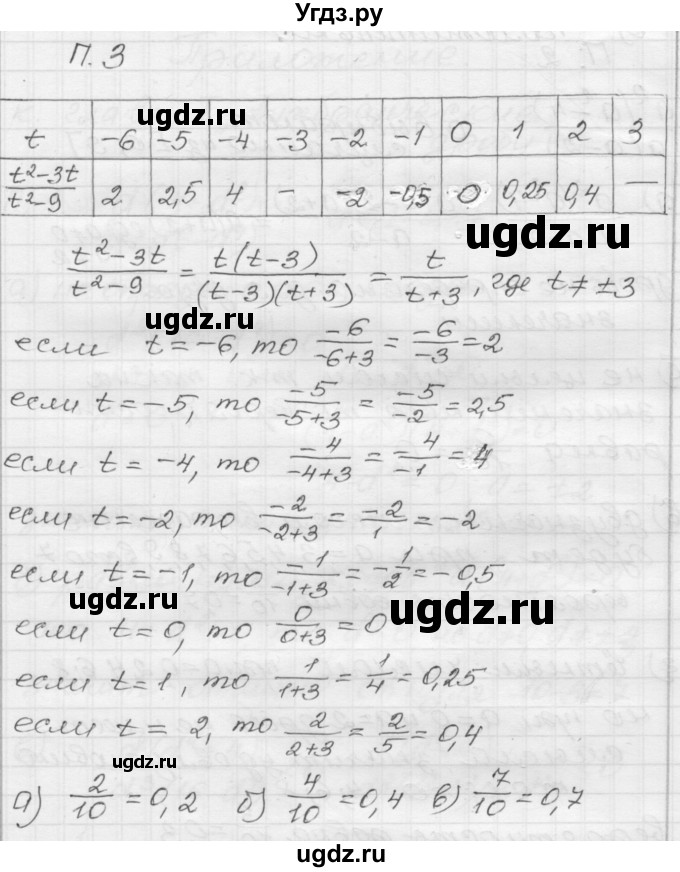 Угдз.ру
П. 3
ugdz.ru
t -6 -5 -4 -3 -2 -1 0 1 2 3
(t²-3t)/(t²-9) 2 2,5 4 - -2 -0,5 0 0,25 0,4 —
ugdz.ru ugdz.ru
(t²-3t)/(t²-9) = t(t-3)/((t-3)(t+3)) = t/(t+3), где t ≠ ±3
ugdz.ru
если t = -6, то -6/(-6+3) = -6/-3 = 2
если t = -5, то -5/(-5+3) = -5/-2 = 2,5
если t = -4, то -4/(-4+3) = -4/-1 = 4
если t = -2, то -2/(-2+3) = -2/1 = -2
если t = -1, то -1/(-1+3) = -1/2 = -0,5
ugdz.ru ugdz.ru
если t = 0, то 0/(0+3) = 0
если t = 1, то 1/(1+3) = 1/4 = 0,25
если t = 2, то 2/(2+3) = 2/5 = 0,4
ugdz.ru
а) 2/10 = 0,2 б) 4/10 = 0,4 в) 7/10 = 0,7
ugdz.ru